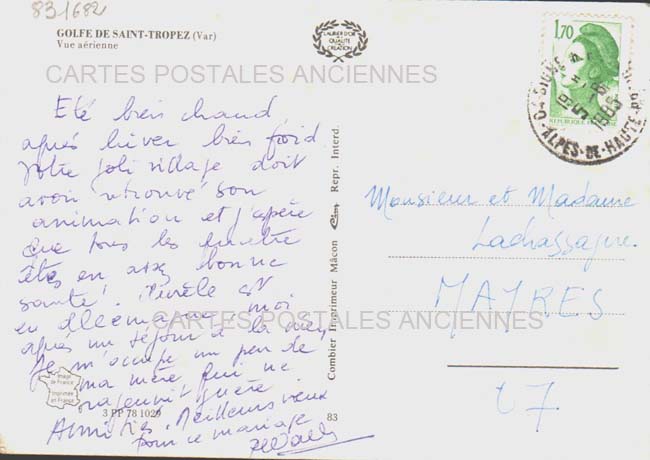 831682
GOLFE DE SAINT-TROPEZ (Var)
Vue aérienne
LAURIER D'OR
QUALITÉ
CRÉATION
1,70
REPUBLIQUE FRANÇAISE
1985
ALPES-DE-HAUTE-PR
CARTES POSTALES ANCIENNES
Eté bien chaud
après hiver bien froid
Votre joli village doit
avoir retrouvé son
animation et j'espère
que tous les quatre
êtes en assez bonne
santé. est
en Allemagne, moi
après un séjour à la mer,
Je m'occupe un peu de
ma mère qui ne
rajeunit guère.
Amitiés. Meilleurs vœux
pour ce mariage
Image
de France
Imprimée
en France
3 PP 78 1029
83
Combier Imprimeur Mâcon Cim Repr. Interd.
Monsieur et Madame
Lachassagne
MAYRES
07
CARTES POSTALES ANCIENNES